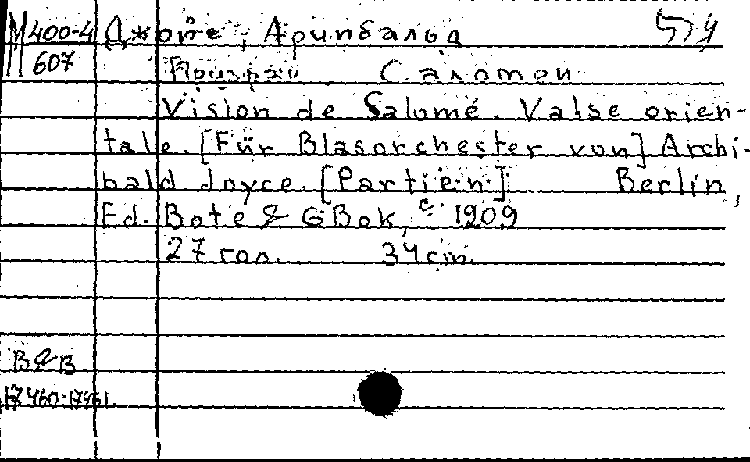 М 400-4 Джойс, Арчибальд 514
607 Призрак Саломеи
Vision de Salomé. Valse orien-
tale. [Für Blasorchester von] Archi-
bald Joyce. [Partien.] Berlin,
Ed. Bote & GBok, c 1909
27 гол. 34 cm.
B&B
17460-17461.